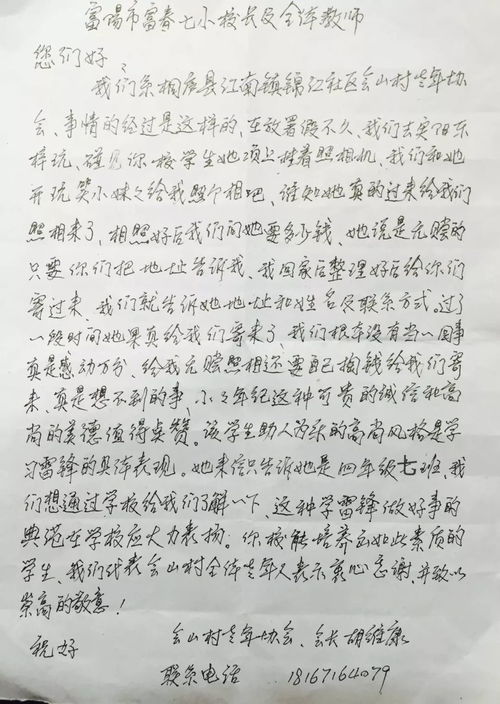 富阳市富春七小校长及全体教师
您们好,
我们系桐庐县江南镇锦江社区会山村老年协
会、事情的经过是这样的,在放署假不久,我们去富阳东
梓玩,碰见你校学生她项上挂着照相机,我们和她
开玩笑小妹々给我照个相吧,谁知她真的过来给我们
照相来了,相照好后我们问她要多少钱,她说是无赊的
只要你们把地址告诉我,我回家后整理好后给你们
寄过来,我们就告诉她地址和姓名及联系方式。过了
一段时间她果真给我们寄来了,我们根本没有当一回事
真是感动万分,给我无赊照相还要自己掏钱给我们寄
来,真是想不到的事,小々年纪这种可贵的诚信和高
尚的美德值得点赞。该学生助人为乐的高尚风格是学
习雷锋的具体表现。她来信只告诉她是四年级七班,我
们想通过学校给我们了解一下,这种学雷锋做好事的
典范在学校应大力表扬。你校能培养出如此素质的
学生,我们代表会山村全体老年人表示衷心感谢,并致以
崇高的敬意!
祝好
会山村老年协会、会长胡维康
联系电话 18167164079